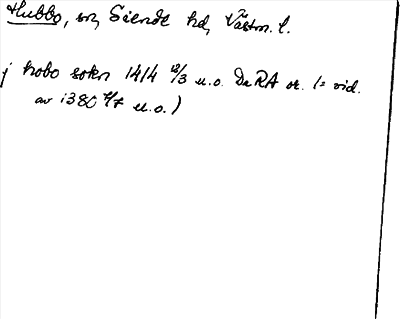 Hubbo, sn, Siende hd, Västm. l.
j hobo sokn 1414 12/3 u.o. DaRA or. (= vid.
av 1380 4/7 u.o.)